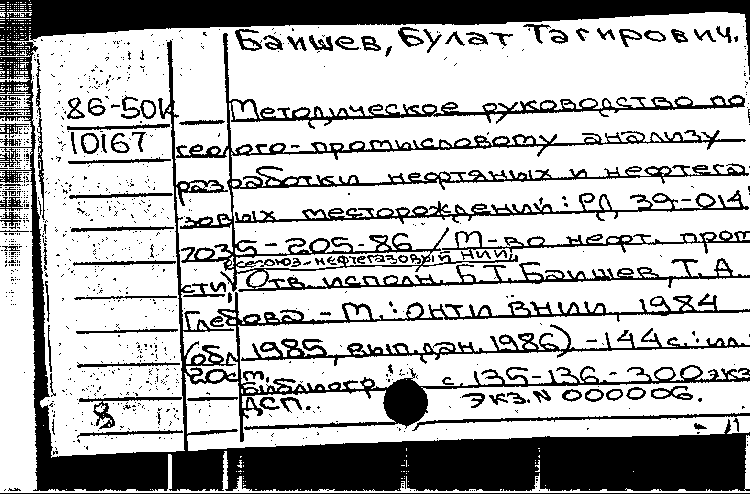 Баишев, Булат Тагирович.
86-50К Методическое руководство по
10167 геолого-промысловому анализу
разработки нефтяных и нефтега
зовых месторождений: РД 39-014
7035-205-86 / М-во нефт. пром
Всесоюз. нефтегазовый НИИ;
сти, Отв. исполн. Б.Т. Баишев, Т. А.
Глебова. - М.: ОНТИ ВНИИ, 1984
(обл 1985, вып. дан. 1986) - 144 с.: ил.
20 см.
Библиогр с. 135-136. - 300 экз
ДСП. Экз. N 000006.
8